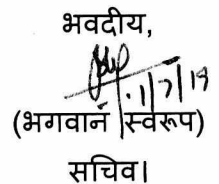 भवदीय,
1/7/19
(भगवान स्वरूप)
सचिव।